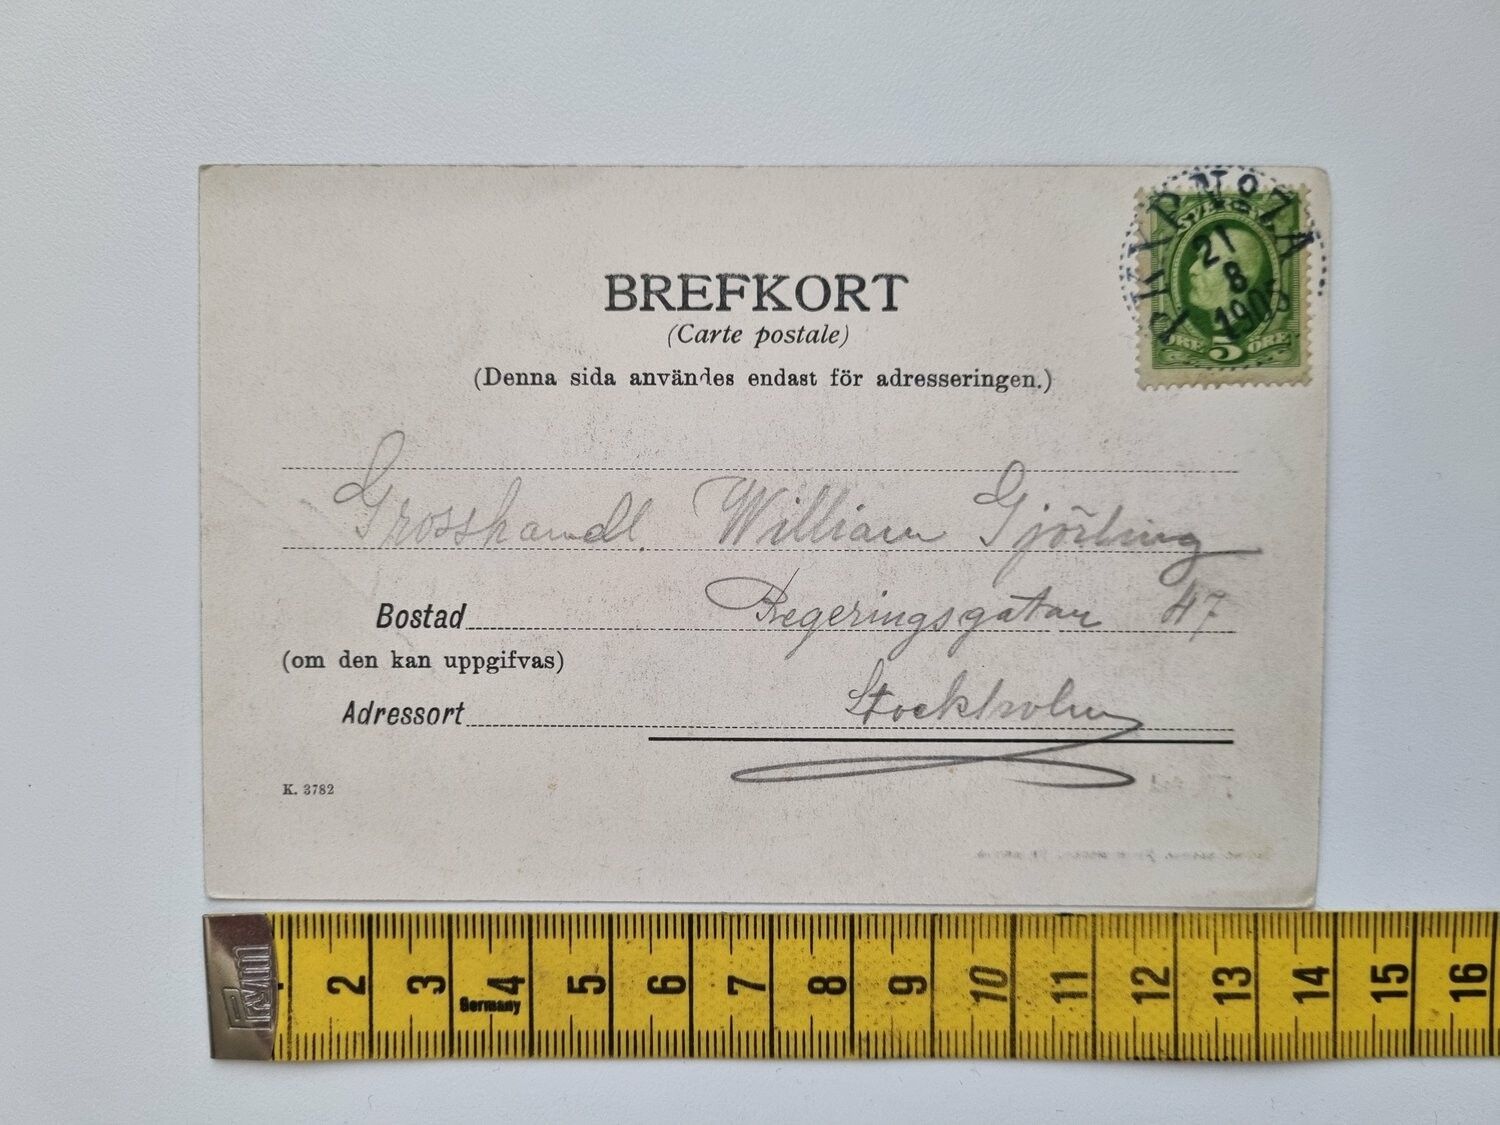 BREFKORT
(Carte postale)
(Denna sida användes endast för adresseringen.)
PKXP No 7A
21
8
1905
SVERIGE
ÖRE 5 ÖRE
Grosshandl. William Gjörling
Bostad Regeringsgatan 47
(om den kan uppgifvas)
Adressort Stockholm
K. 3782
Prym
2 3 4 5 6 7 8 9 10 11 12 13 14 15 16
Germany